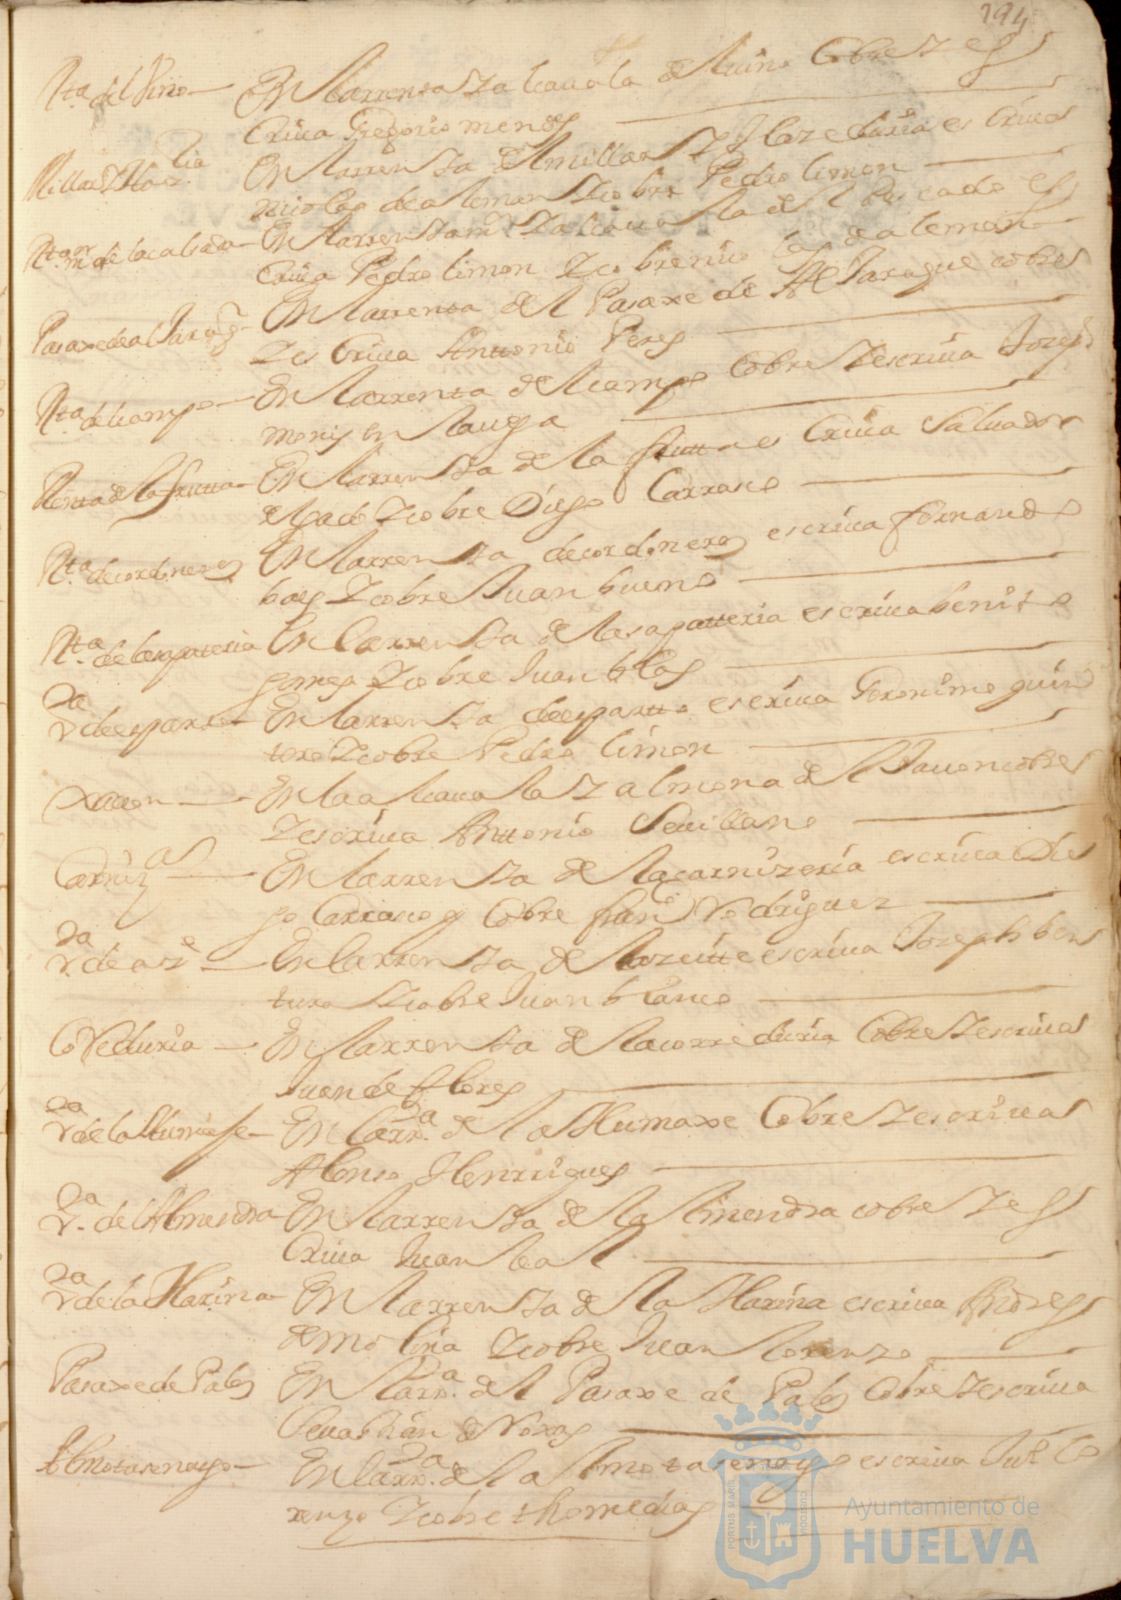 194
Rta del Vino — En la rrenta y alcauala del uino cobre y es
criua Gregorio mendes
Millar y Haz.lia En la rrenta del millar y Hazeduria escriua
nicolas de aleman y cobre Pedro limon
Rta mr de la calada — En la rrenta mr y alcauala del Pescado es
criua Pedro limon y cobre nicolas de aleman
Pasaxe de alJaraq.e — En la rrenta del Pasaxe de AlJaraque cobre
y escriua Anttonio Peres
Rta del campo — En la rrenta del campo cobre y escriua Joseph
monis
Renta de la frutta — En la rrenta de la frutta escriua Saluador
delgado y cobre Diego Carrasco
Rta de cordoneros En la rrenta de cordoneros escriua fernando
baes y cobre Juan bueno
Rta de la sapateria En la rrenta de la sapatteria escriua benito
gomes y cobre Juan blas
Rda de esparto — En la rrenta de espartto escriua Geronimo quin
tero y cobre Pedro limon
Xauon — En la alcauala y almona del Jauon cobre
y escriua Anttonio Seuillano
Carniz.as — En la rrenta de la carnizeria escriua Die
go Carrasco y cobre fran.co Rodriguez
Rda de az.e — En la rrenta del azeitte escriua Joseph ben
tura y cobre Juan blanco
Coreduria — En la rrenta de la correduria cobre y escriua
Juan de flores
Rda de la Humaxe — En la rr.da de la Humaxe cobre y escriua
Alonso Henriques
Rda del Almendra — En la rrenta de la Almendra cobre y es
criua Juan leal
Rda de la Harina — En la rrenta de la Harina escriua Andres
de molina y cobre Juan lorenzo
Pasaxe de Palos En la rr.da del Pasaxe de Palos cobre y escriua
Seuastian de Roxas
Almotasenasgo — En la rr.da de la Almotasenasgo escriua Ju.o lo
renzo y cobre thome dias
PORTUS MARIS
CUSTODIA
Ayuntamiento de
HUELVA